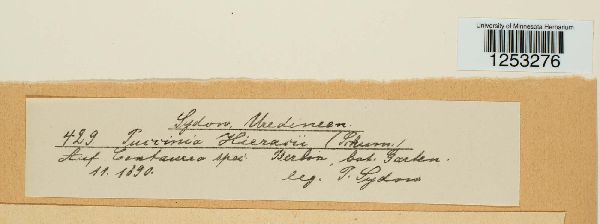 University of Minnesota Herbarium
1253276
Sydow, Uredineen.
429 Puccinia Hieracii (Schum)
Auf Centaurea spec. Berlin, bot. Garten.
11. 1890. leg. P. Sydow